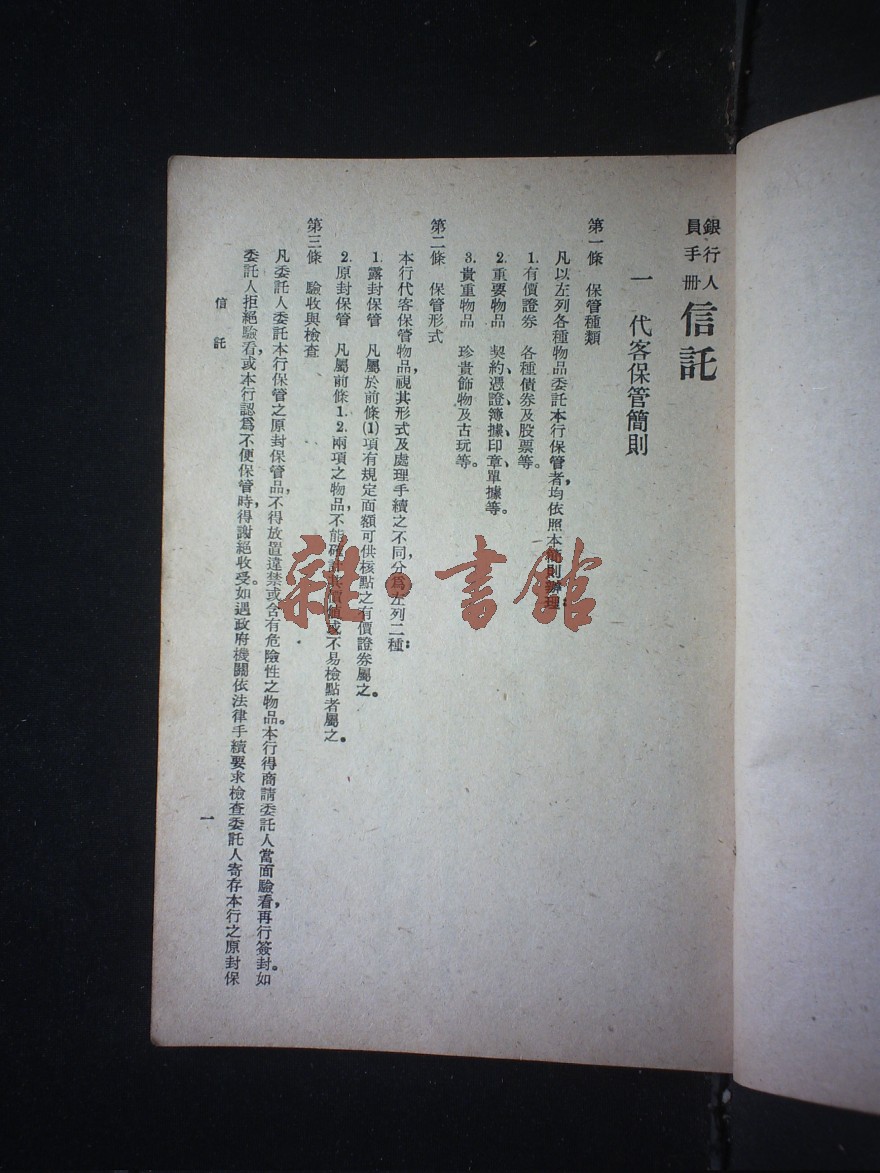 銀行人員手冊 信託
一 代客保管簡則
第一條 保管種類
凡以左列各種物品委託本行保管者,均依照本簡則辦理:
1. 有價證券 各種債券及股票等。
2. 重要物品 契約、憑證、簿據、印章、單據等。
3. 貴重物品 珍貴飾物及古玩等。
第二條 保管形式
本行代客保管物品,視其形式及處理手續之不同,分爲左列二種:
1. 露封保管 凡屬於前條(1)項有規定面額可供核點之有價證券屬之。
2. 原封保管 凡屬前條1. 2. 兩項之物品,不能確計其價值或不易檢點者屬之。
第三條 驗收與檢查
凡委託人委託本行保管之原封保管品,不得放置違禁或含有危險性之物品。本行得商請委託人當面驗看,再行簽封。如
委託人拒絕驗看,或本行認爲不便保管時,得謝絕收受。如遇政府機關依法律手續要求檢查委託人寄存本行之原封保
信託
一
雜·書館